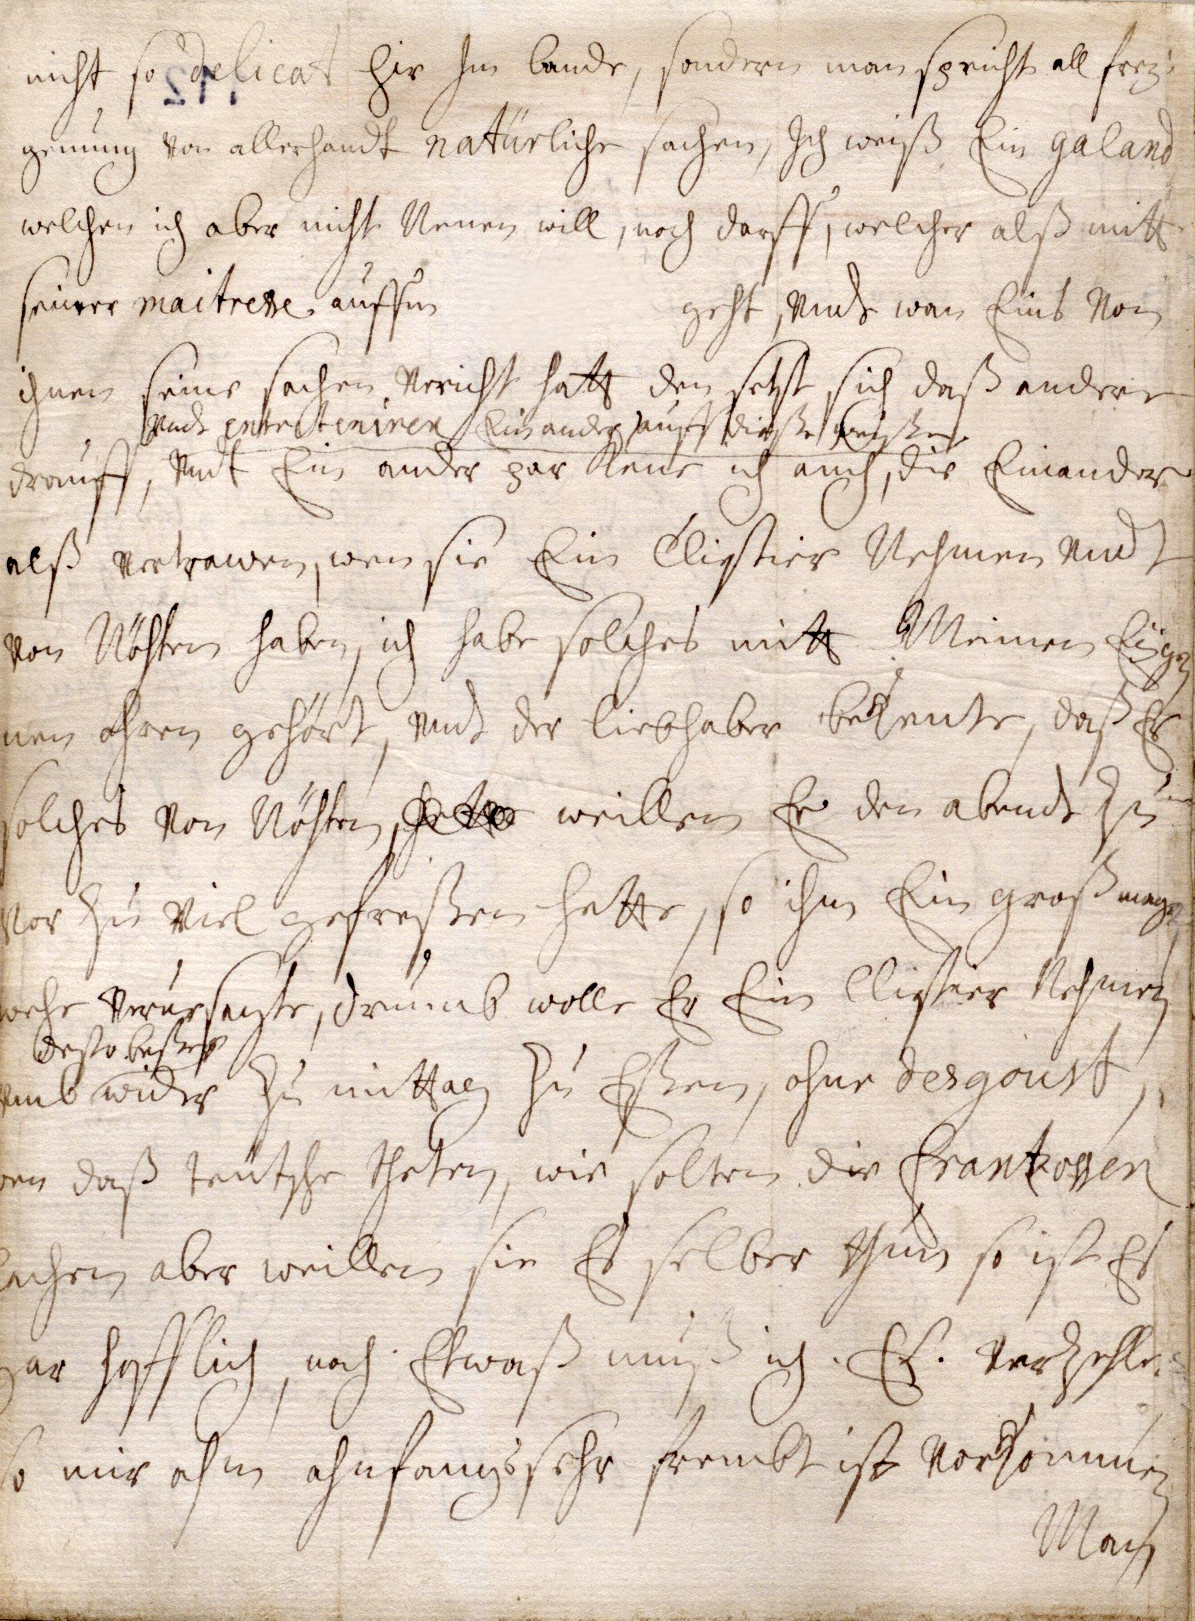 nicht so delicat hir im lande, sondern man spricht all frey
genung von allerhandt natürliche sachen, Ich weiß Ein galand
welchen ich aber nicht Nenen will, noch darff, welcher alß mitt
seiner maitresse auffm geht, undt wan Eins von
ihnen seine sachen Vericht hatt den setzt sich daß andere
undt entreteniren Einander auff dieße weiße
drauff, undt Ein ander par Kene ich auch, die Einander
alß vertrawen, wen sie Ein Clistier Nehmen undt
von Nöhten haben, ich habe solches mitt Meinen Eyge
nen ohren gehört, undt der liebhaber bekente, daß Er
solches von Nöhten, weillen Er den abendt zu
vor zu viel gefreßen hette, so ihm Ein groß mage
wehe verursachte, drumb wolle Er Ein Clistier Nehmen
desto beßer
umb wider zu mittag zu Eßen, ohne desgoust,
wen daß teutsche theten, wie solten die frantzossen
lachen aber weillen sie Es selber thun so ist Es
gar hofflich, noch Etwaß muß ich E. verzehlen
so mir ahm ahnfangs sehr frembt ist vorkommen
Man